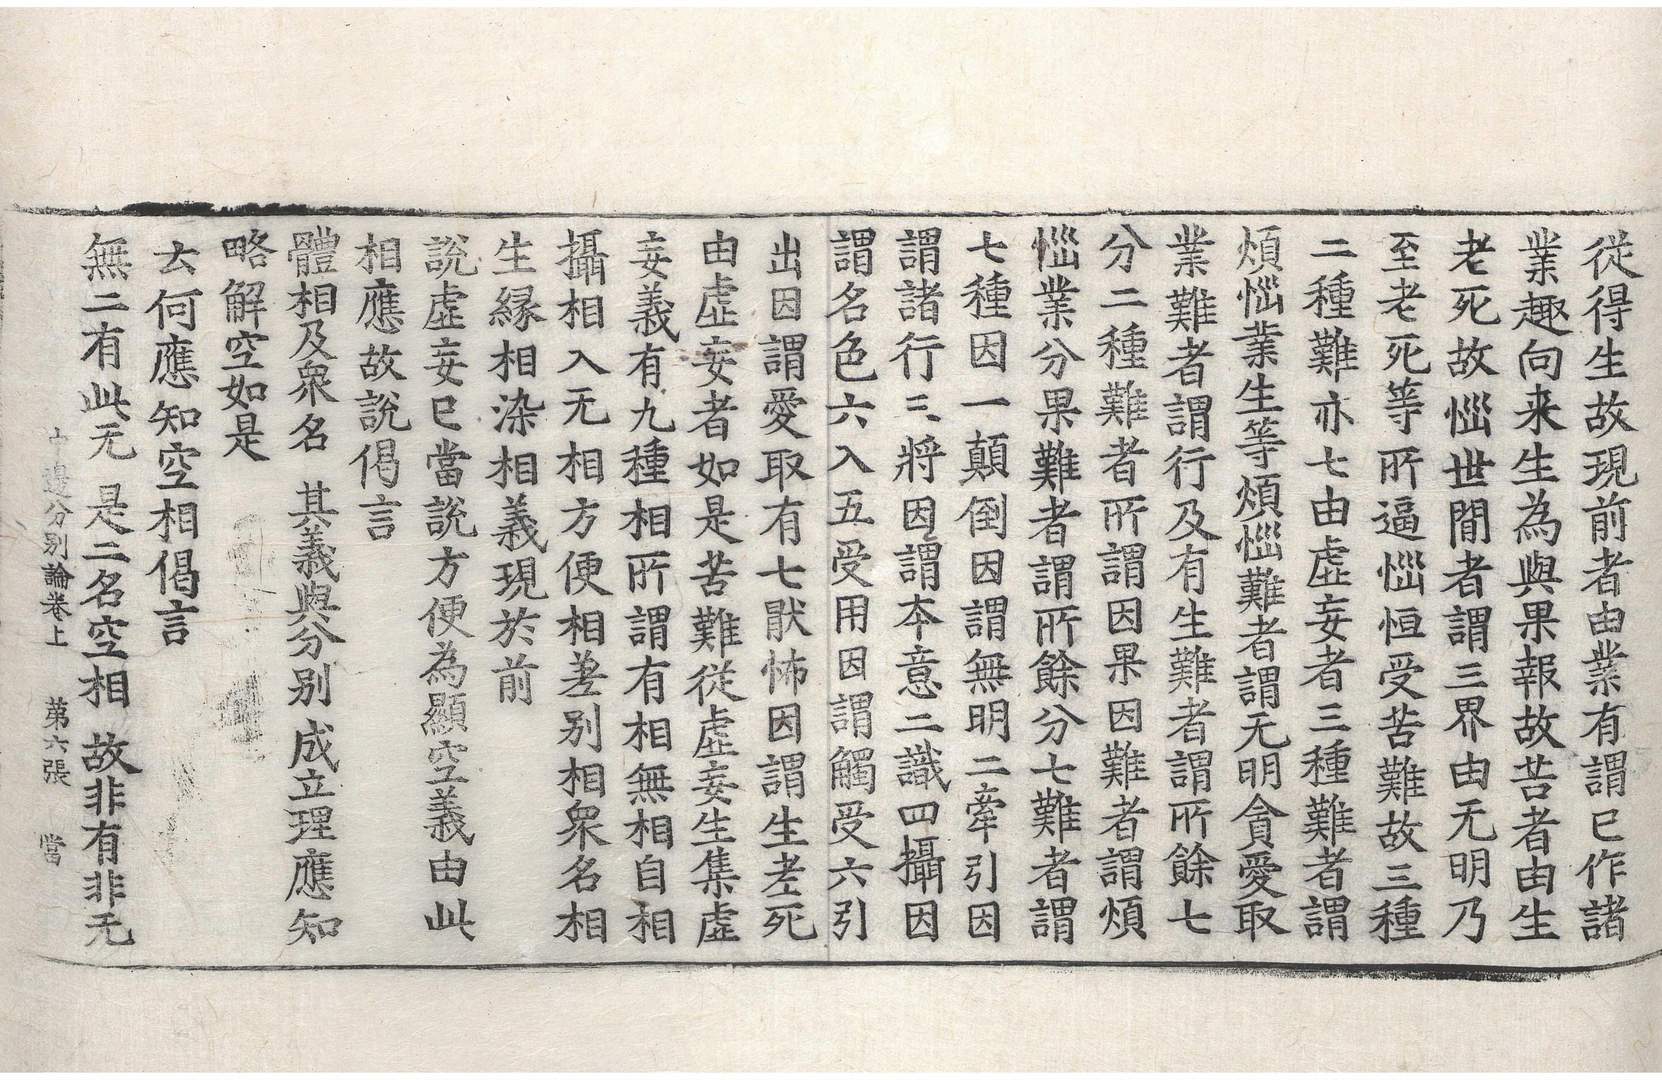 從得生故現前者由業有謂已作諸
業趣向来生為與果報故苦者由生
老死故惱世間者謂三界由无明乃
至老死等所逼惱恒受苦難故三種
二種難亦七由虛妄者三種難者謂
煩惱業生等煩惱難者謂无明貪愛取
業難者謂行及有生難者謂所餘七
分二種難者所謂因果因難者謂煩
惱業分果難者謂所餘分七難者謂
七種因一顛倒因謂無明二牽引因
謂諸行三將因謂本意二識四攝因
謂名色六入五受用因謂觸受六引
出因謂愛取有七猒怖因謂生老死
由虛妄者如是苦難從虛妄生集虛
妄義有九種相所謂有相無相自相
攝相入无相方便相差別相衆名相
生縁相染相義現於前
說虛妄已當說方便為顯空義由此
相應故說偈言
體相及衆名 其義與分別 成立理應知
略解空如是
云何應知空相偈言
無二有此无 是二名空相 故非有非无
中邊分別論卷上 第六張 當